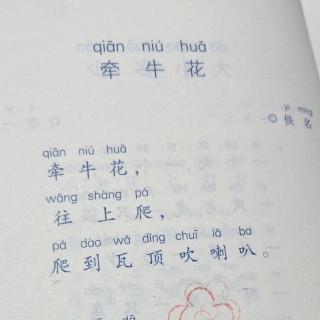 qiān niú huā
牵牛花
yì míng
佚名
qiān niú huā
牵牛花，
wǎng shàng pá
往上爬，
pá dào wǎ dǐng chuī lǎ ba
爬到瓦顶吹喇叭。